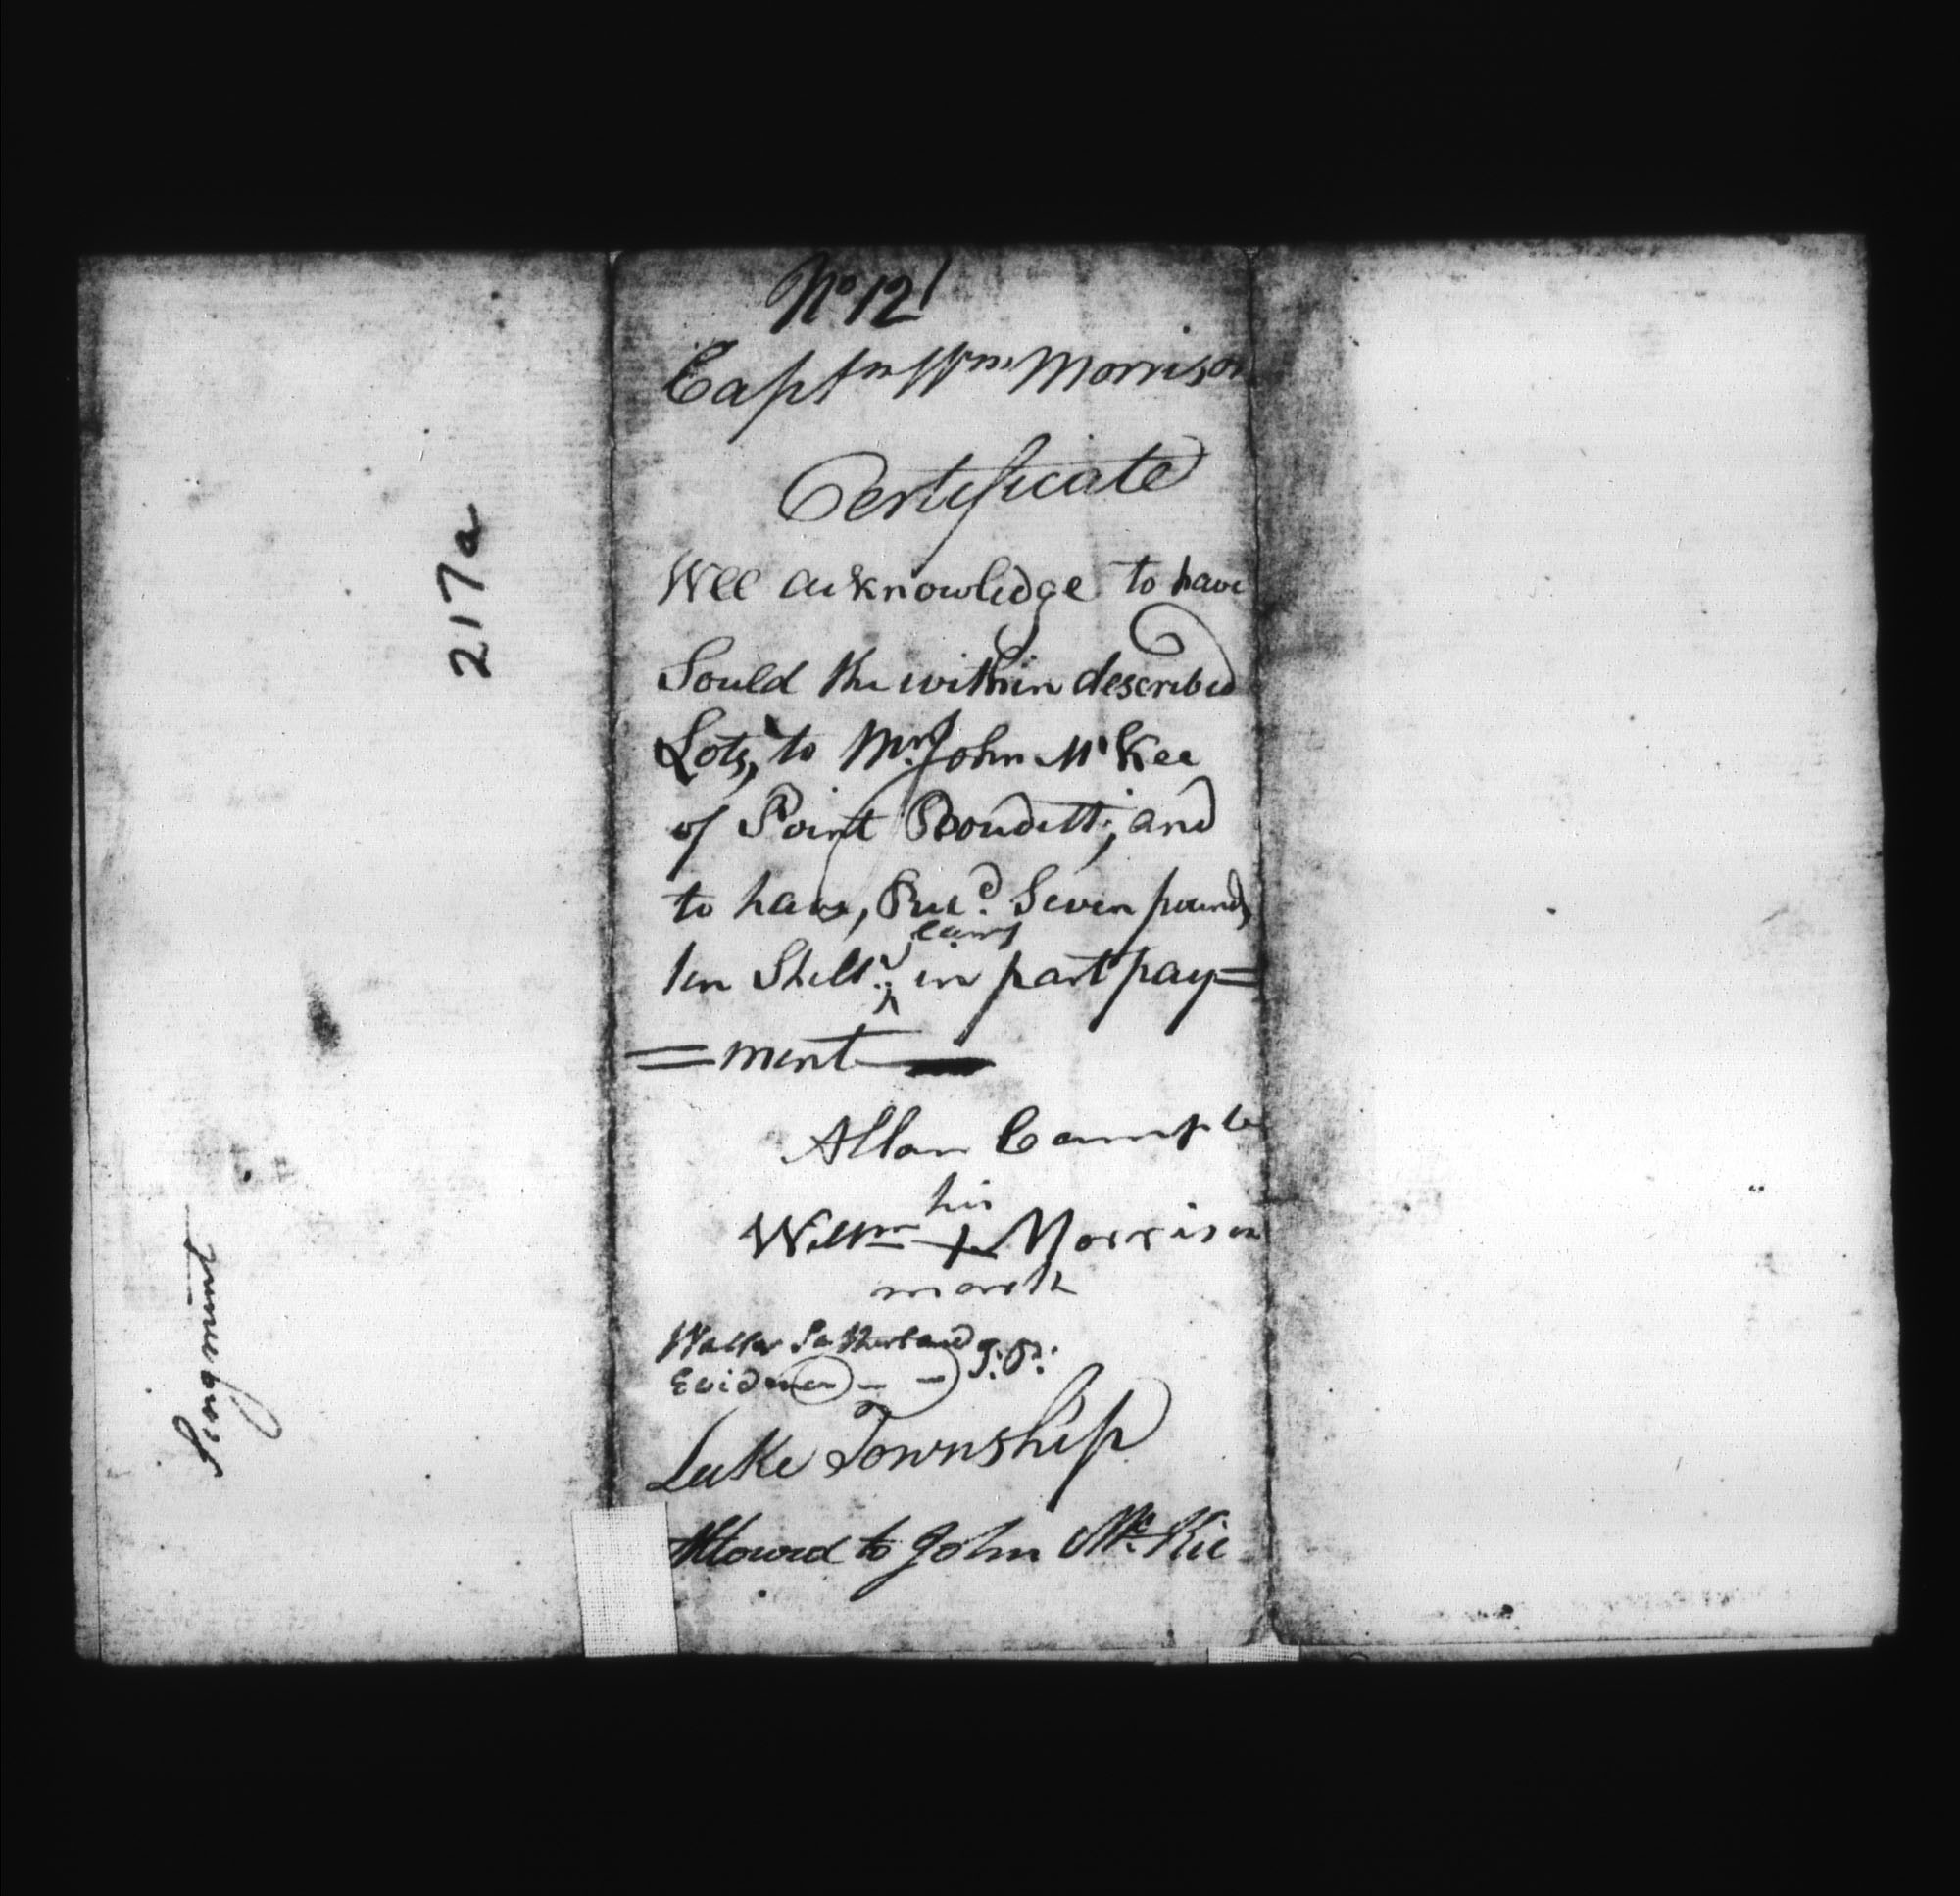 217a
Singment
No 12
Captn Wm Morrison
Certificate
Wee acknowledge to have
Sould the within described
Lots, to Mr John McKee
of Point Boudett; and
to have, Recd. Seven pounds
ten Shills. in part pay=
=ment
Allan Campbe
his
Willm + Morrison
mark
Walter Sutherland J:P:
Evidence
Lake Township
Allowed to John McKee